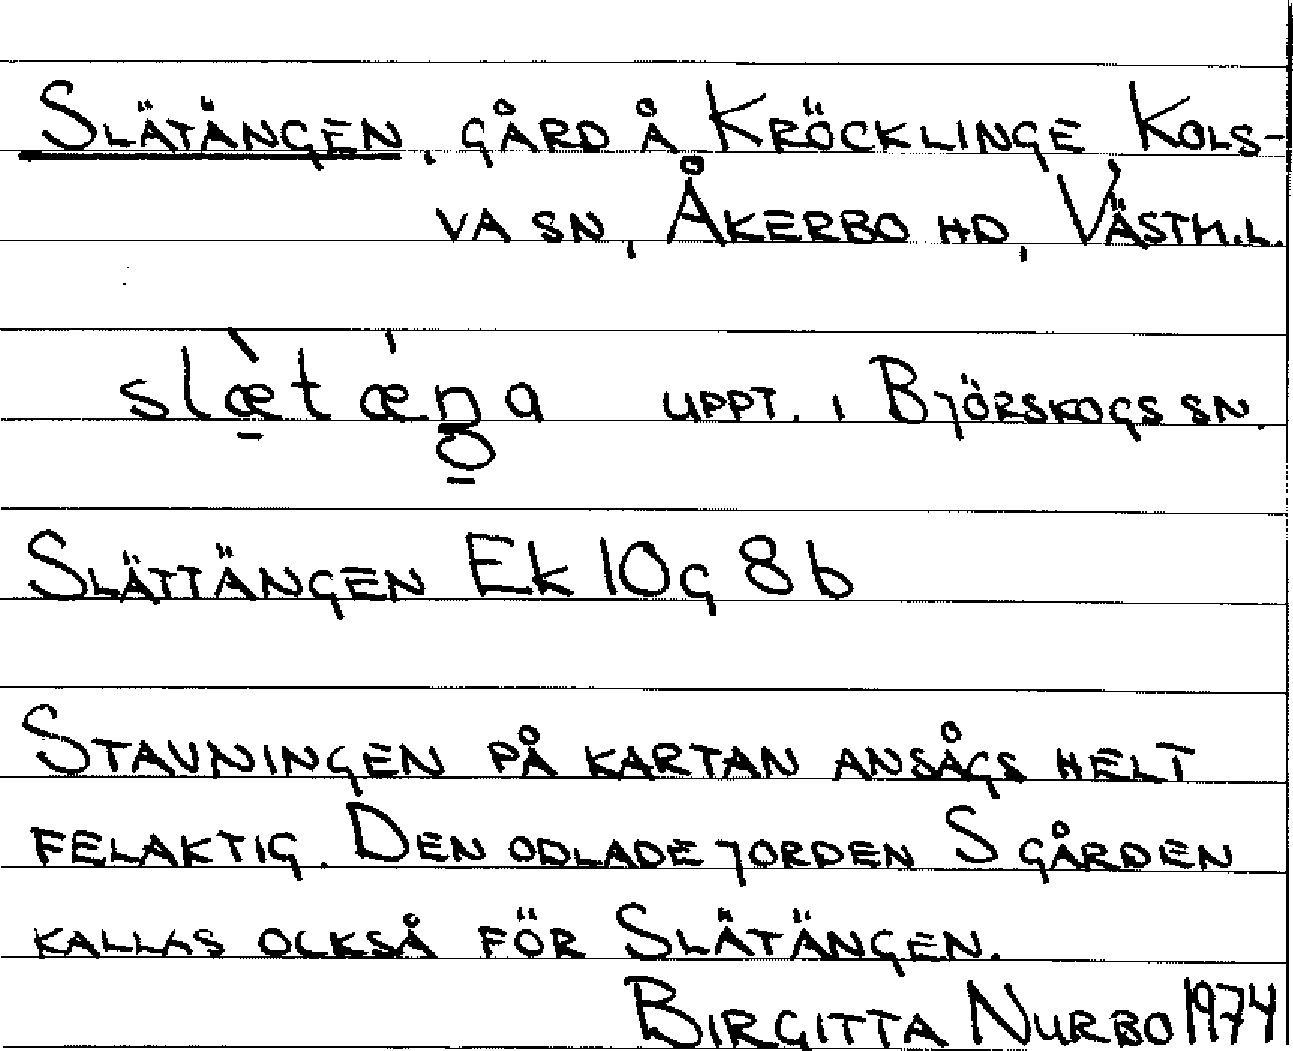 SLÄTÄNGEN, GÅRD Å KRÖCKLINGE, KOLS-
VA SN, ÅKERBO HD, VÄSTM.L.
slæ̀tǽŋa UPPT. I BJÖRSKOGS SN.
SLÄTTÄNGEN Ek 10g 8b
STAVNINGEN PÅ KARTAN ANSÅGS HELT
FELAKTIG. DEN ODLADE JORDEN S GÅRDEN
KALLAS OCKSÅ FÖR SLÄTÄNGEN.
BIRGITTA NURBO 1974